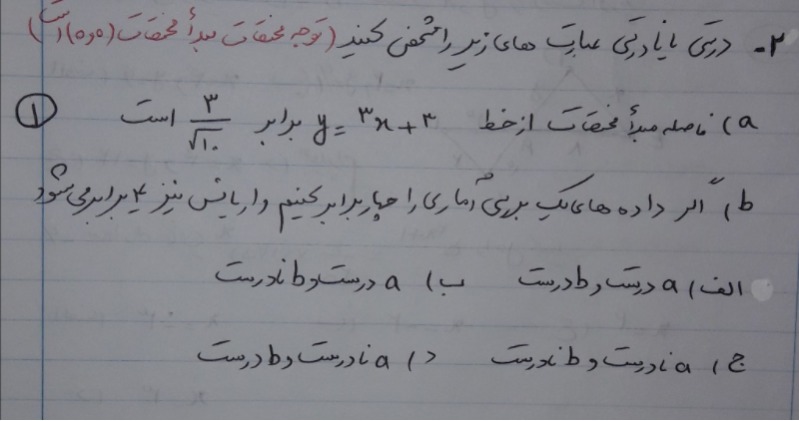 ۲- درستی یا نادرستی عبارت های زیر را مشخص کنید (توجه مختصات مبدأ مختصات (۰,۰) است)
a) فاصله مبدأ مختصات از خط y = ۳x + ۳ برابر ۳/√۱۰ است ①
b) اگر داده های یک بررسی آماری را چهار برابر کنیم واریانس نیز ۴ برابر می شود
الف) a درست و b درست ب) a درست و b نادرست
ج) a نادرست و b نادرست د) a نادرست و b درست